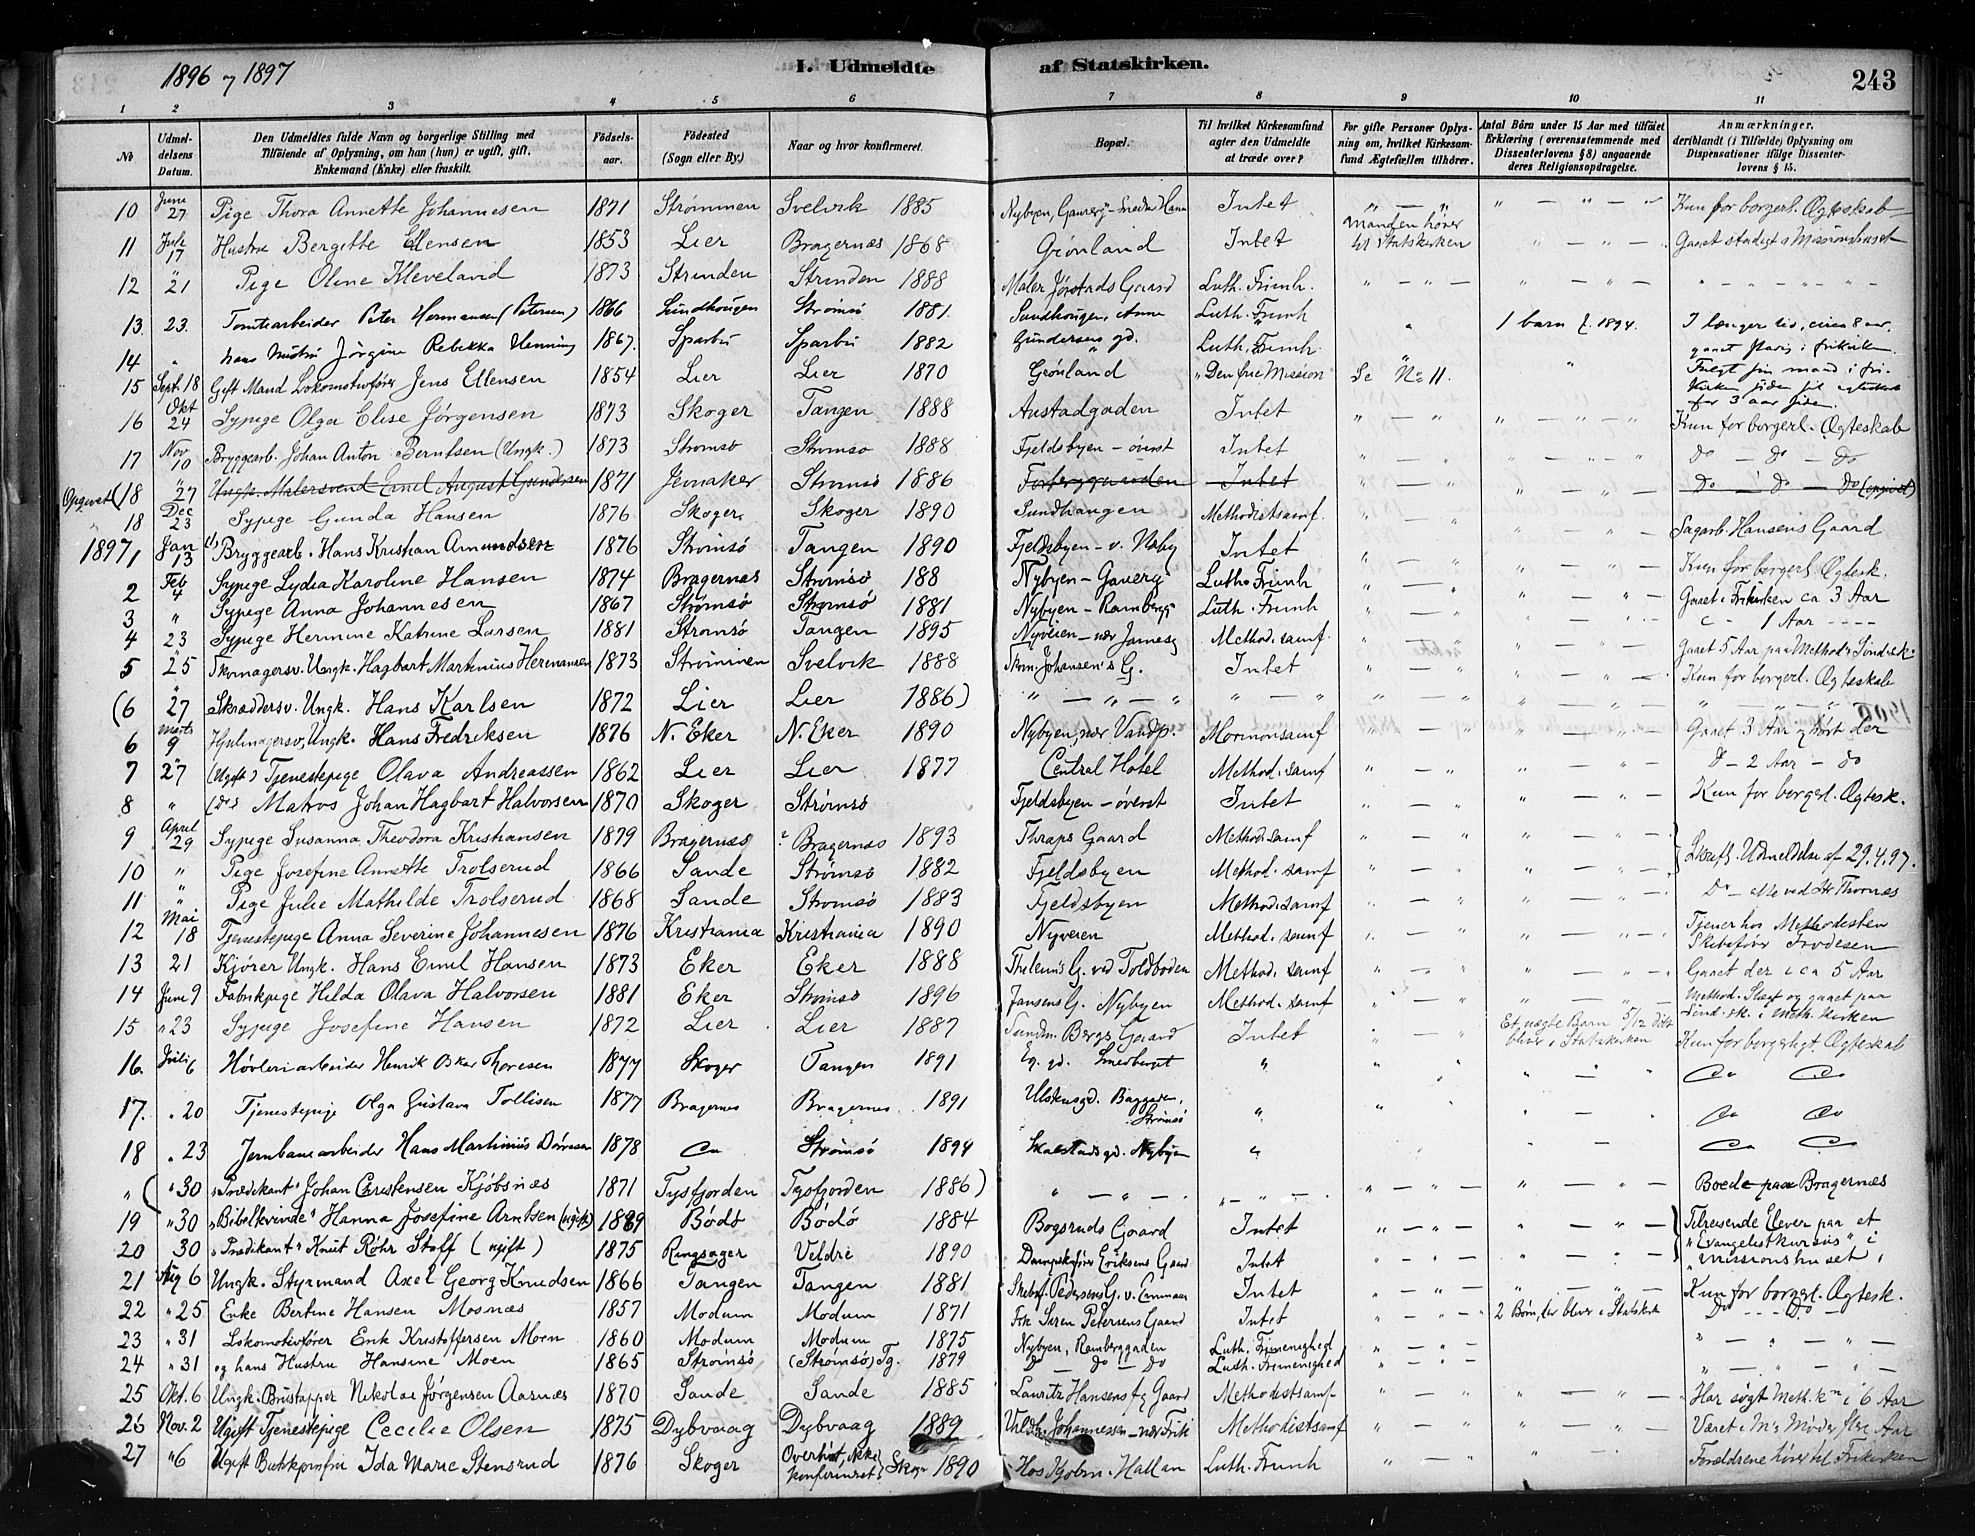 1896 og 1897
I. Udmeldte af Statskirken.
243
1 2 3 4 5 6 7 8 9 10 11
No
Udmeldelsens Datum.
Den Udmeldtes fulde Navn og borgerlige Stilling med Tilföiende af Oplysning, om han (hun) er ugift, gift, Enkemand (Enke) eller fraskilt.
Födselsaar.
Födested (Sogn eller By.)
Naar og hvor konfirmeret.
Bopæl.
Til hvilket Kirkesamfund agter den Udmeldte at træde over?
For gifte Personer Oplysning om, hvilket Kirkesamfund Ægtefællen tilhörer.
Antal Börn under 15 Aar med tilföiet Erklæring (overensstemmende med Dissenterlovens § 8) angaaende deres Religionsopdragelse.
Anmærkninger, deriblandt (i Tilfælde) Oplysning om Dispensationer ifölge Dissenterlovens § 15.
10 June 27 Pige Thora Annette Johannesen 1871 Strømmen Svelvik 1885 Nybyen, Intet " — " " — " — " Kun for borgerl. Ægteskab
11 Juli 17 Hustru Bergitte Ellensen 1853 Lier Bragernæs 1868 Grönland Intet Manden hörer til Statskirken " — " — " Gaaet stadigt i Missionshuset
12 " 21 Pige Oline Kleveland 1873 Strinden Strinden 1888 Maler Jörstads Gaard Luth. Frimh. " — " — " " — " — " " — " — "
13. 23. Tomtearbeider Peter Hermansen (Petersen) 1866 Sundhougen Strömsö 1881. Sundhougen, Luth. Frimh " 1 barn f. 1894. I længer tid, circa 8 aar, gaaet i frikirken.
14 " hans hustru Jörgine Rebekka Henning 1867. Sparbu Sparbu 1882 Gundersens gd. Luth. Frimh. " Fulgt sin mand i frikirken siden for 3 aar siden.
15 Sept. 18 Gift Mand Lokomotivförer Jens Ellensen 1854 Lier Lier 1870 Grönland "Den frie Mission" Se No 11.
16 Okt 24 Sypige Olga Elise Jörgensen 1873 Skoger Tangen 1888 Austadgaden Intet " — " " — " — " Kun for borgerl. Ægteskab
17 Nov 10 Bryggearb. Johan Anton Berntsen (Ungk.) 1873 Strömsö Strömsö 1888 Fjeldsbyen – överst Intet " — " " — " — " Do — do — Do
Opgivet (18 " 27 Ungk. Malersvend Emil August Gundersen 1871 Jevnaker Strömsö 1886 Intet " — " " — " — " Do — Do — Do (opgivet)
18 Dec 23 Sypige Gunda Hansen 1876 Skoger. Skoger 1890 Sundhaugen Methodistsamf. " — " " — " — " Sagarb. Hansens Gaard
1897 1 Jan 13 Bryggearb. Hans Kristian Amundsen 1876 Strömsö Tangen 1890 Fjeldsbyen – v. Intet " — " " — " — " Kun for borgerl. Ægtesk.
2 Feb 4 Sypige Lydia Karoline Hansen 1874 Bragernæs Strömsö 188 Nybyen – Luth. Frimh " — " " — " — " Gaaet i Frikirken ca 3 Aar
3 " Sypige Anna Johannesen 1867 Strömsö Strömsö 1881 Nybyen – Rambergg Luth. Frimh " — " " — " — " 1 Aar - - - -
4 23 Sypige Hermine Katrine Larsen 1881 Strömsö Tangen 1895 Nyveien – nær Method. samf. " — " " — " — " Gaaet 5 Aar paa Method. Sönd.sk.
5 25 Skomagersv. Ungk. Hagbart Martinius Hermansen 1873 Strömmen Svelvik 1888 Johansen's G. Intet " — " " — " — " Kun for borgerl. Ægteskab
(6 " 27 Skræddersv. Ungk. Hans Karlsen 1872 Lier Lier 1886) " — " — " " — " " — " " — " — " " — " — "
6 Marts 9 Hjulmagersv. Ungk. Hans Fredriksen 1876 N. Eker N. Eker 1890 Nybyen, nær Vandp. Mormonsamf " — " " — " — " Gaaet 3 Aar og hört der
7 27 (Ugift) Tjenestepige Olava Andreassen 1862 Lier Lier 1877 Central Hotel Method. samf " — " " — " — " D – 2 Aar – do
8 " (Do) Matros Johan Hagbart Halvorsen 1870 Skoger Strömsö Fjeldsbyen – överst Intet " — " " — " — " Kun for borgerl. Ægtesk.
9 April 29 Sypige Susanna Theodora Kristiansen 1879 Bragernæs Bragernæs 1893 Thraps Gaard Method. samf " — " " — " — "
10 " Pige Josefine Annette Trolserud 1866 Sande Strömsö 1882 Fjeldsbyen Method. samf " — " " — " — " Skriftl. Udmeldelse af 29.4.97.
11 " Pige Julie Mathilde Trolserud 1868 Sande Strömsö 1883 Fjeldsbyen Method. samf " — " " — " — " Do – ved Hr Thornæs
12 Mai 18 Tjenestepige Anna Severine Johannesen 1876 Kristiania Kristiania 1890 Nyveien Method. samf " — " " — " — " Tjener hos Methodisten Skibsförer Trodesen
13 21 Kjörer Ungk. Hans Emil Hansen 1873 Eker Eker 1888 Thelens G. ved Toldboden Method. samf " — " " — " — " Gaaet der i ca 5 Aar
14 June 9 Fabrikpige Hilda Olava Halvorsen 1881 Eker Strömsö 1896 Jansens G. Nybyen Method. samf " — " " — " — " Method. Slægt og gaaet paa Sönd.sk. i Meth. Kirken
15 " 23 Sypige Josefine Hansen 1872 Lier Lier 1887 Bergs Gaard Intet " — " Et uægte Barn 5/12 döbt bliver i Statskirken Kun for borgerligt Ægteskab
16. Juli 6 Hövleriarbeider Henrik Oskar Thoresen 1877 Skoger Tangen 1891 gd. Smedberget " " " " — " Do Do
17. " 20 Tjenestepige Olga Gustava Tollisen 1877 Bragernes Bragernes 1891 Ulskensgd. Baggaden, Strömsö " " " " — " Do Do
18 " 23 Jernbanearbeider Hans Martinius 1878 Do Strömsö 1894 gd. Nybyen " " — Do Do
" ( " 30 "Prædikant" Johan Christensen Kjöbsnæs 1871 Tysfjorden Tysfjorden 1886) " — " — " " — " — " " — " — " " — " — " Boede paa Bragernæs
19 " 30 "Bibelkvinde" Hanna Josefine Arntsen (ugift) 1869 Bodö Bodö 1884 Bogsruds Gaard Intet " — " — " " — " — Tilreisende Elever paa et
20 30 "Prædikant" Knut Röhr Staff (ugift) 1875 Ringsager Veldre 1890 Dampskförer Eriksens Gaard Intet " — " — " " — " — "Evangelistkursus" i missionshuset.
21 Aug 6 Ungk. Styrmand Axel Georg Knudsen 1866 Tangen Tangen 1881 Skibsf. Pedersens G. v. Intet " — " " — " — " Kun for borgerl. Ægtesk.
22 " 25 Enke Bertine Hansen Mosnæs 1857 Modum Modum 1871 Frk Siren Petersens Gaard Intet " — " — " 2 Börn, der bliver i Statskirk Do - - - - Do -
23 " 31 Lokomotivförer Erik Kristoffersen Moen 1860 Modum Modum 1875 Nybyen, Ramberggaden Luth. Frimenighed " — " — " " — " — " —
24 " 31 og hans Hustru Hansine Moen 1865 Strömsö (Strömsö) Tg. 1879 D — Do — Do Luth. Frimenighed " — " — " " — " — " —
25 Okt. 6 Ungk. Nikolai Jörgensen Aasnæs 1870 Sande Sande 1885 Lauritz Hansens Gaard Methodistsamf. " — " " — " — " Har sögt Meth. K i 6 Aar
26 Nov. 2 Ugift Tjenestepige Cecilie Olsen 1875 Dybvaag Dybvaag 1889 Johannessen – nær Frik Methodistsamf " — " " — " — " Været i M's Möder flere Aar
27 " 6 Ugift Ida Marie Stensrud 1876 Skoger konfirmeret Skoger 1890 Hos Kjöbm. Hallan Luth. Frimh " — " " — " Forældrene hörer til Frikirken